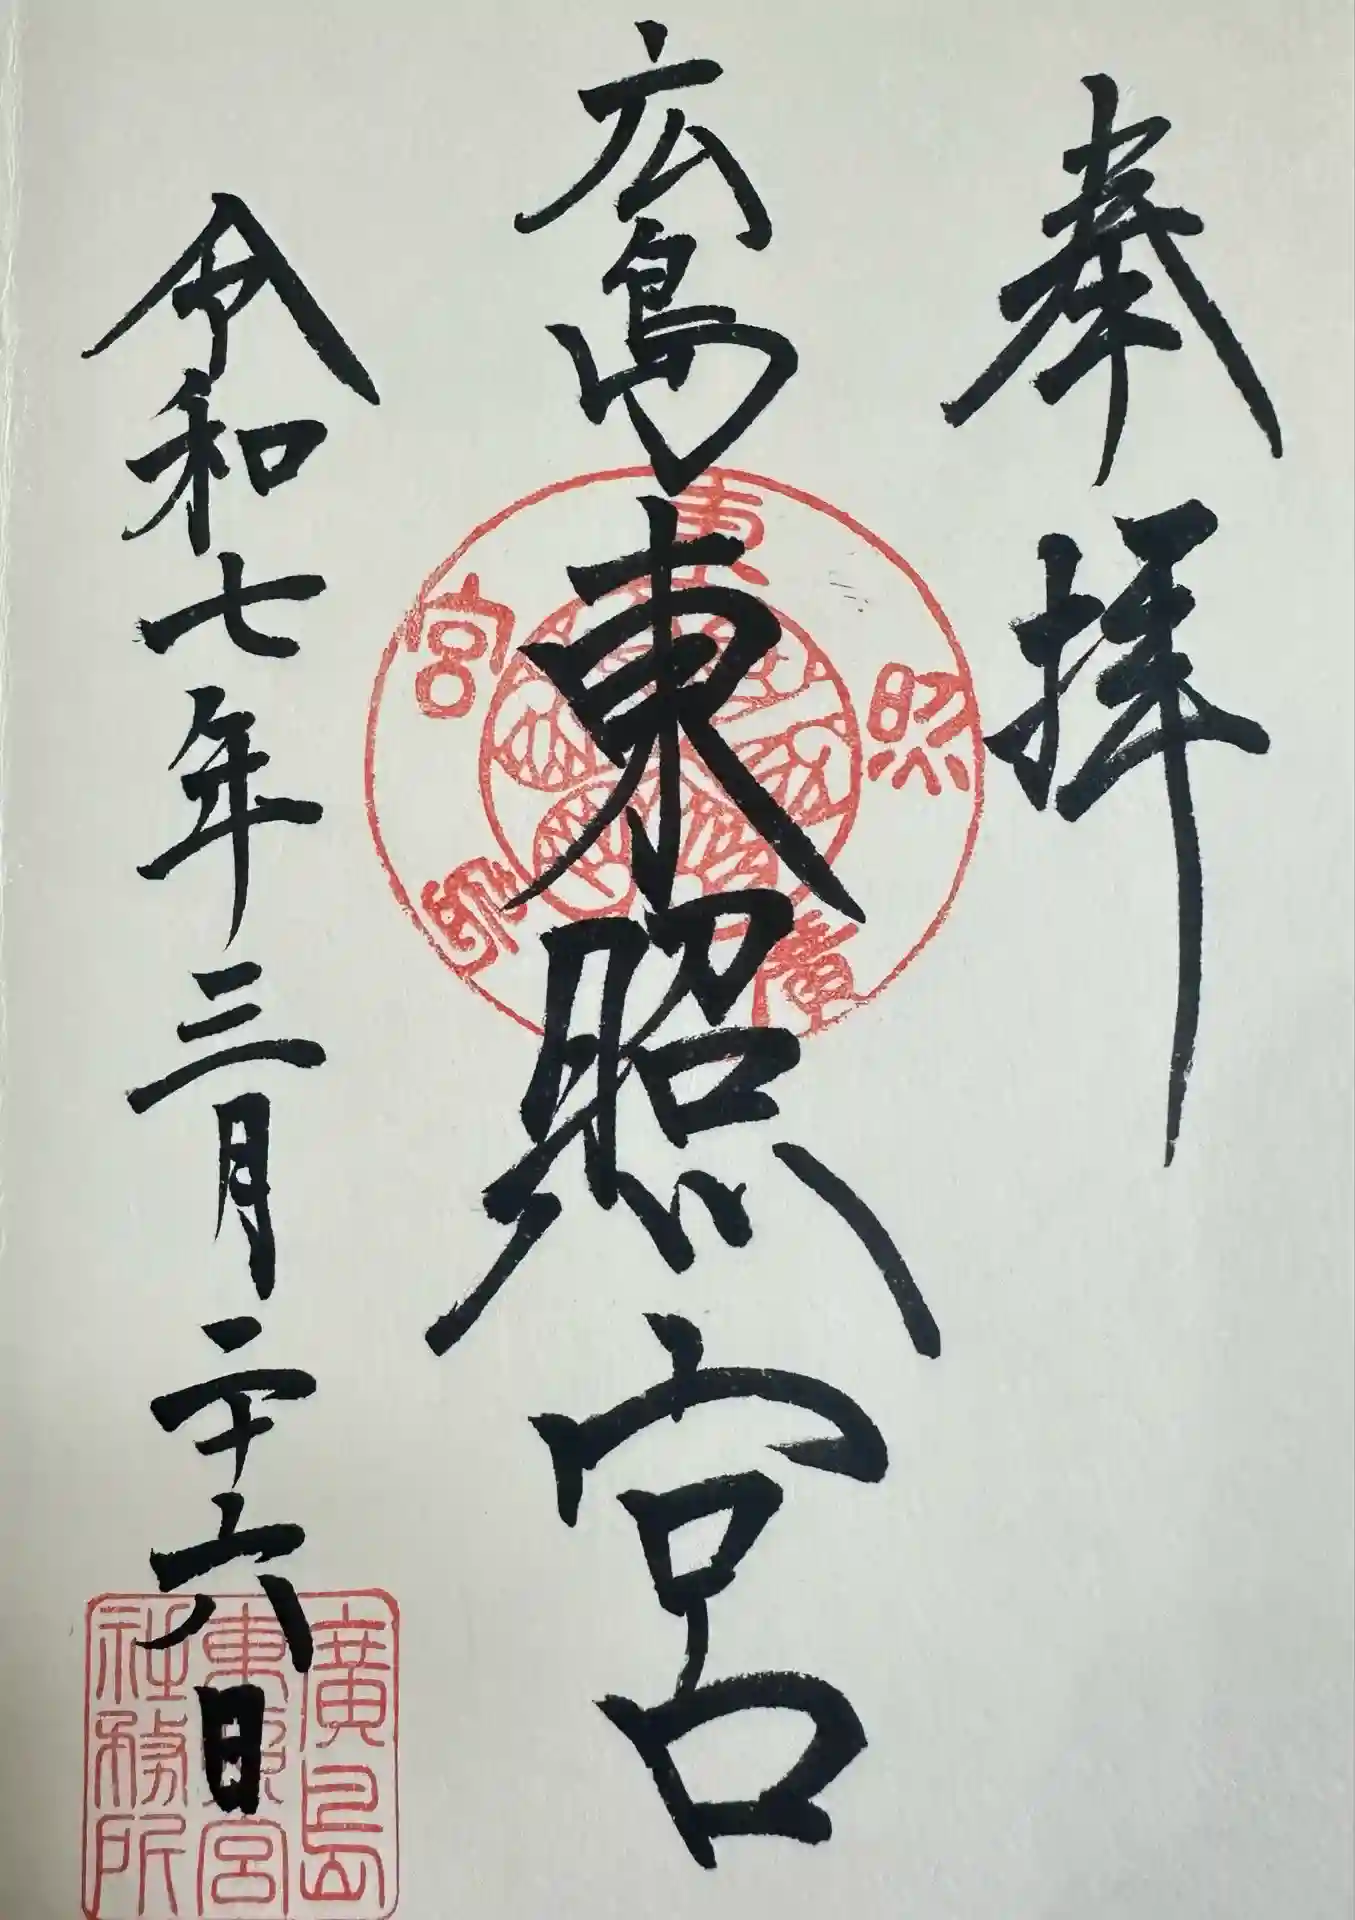 奉拝
広島東照宮
令和七年三月二十六日
東照宮
廣島
東照宮
社務所